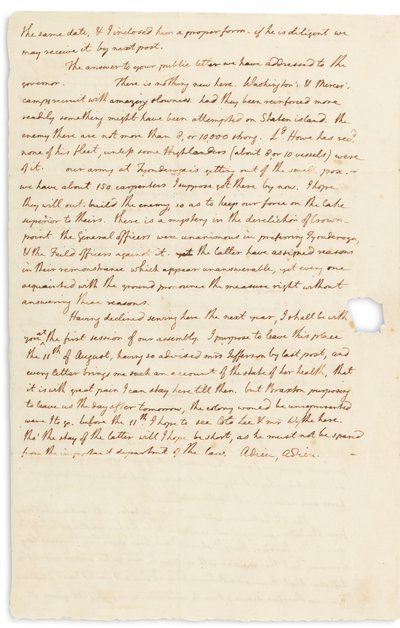 the same date, & I inclosed him a proper form. if he is diligent we
may receive it by next post.
The answer to your public letter we have addressed to the
governor. There is nothing new here. Washington's & Mercer's
camps recruit with amazing slowness. had they been reinforced more
readily something might have been attempted on Staten island. the
enemy there are not more than 8, or 10,000 strong. Ld. Howe has recd.
none of his fleet, unless some Highlanders (about 8 or 10 vessels) were
of it. our army at Tyonderoga is getting out of the small pox.
we have about 150. carpenters I suppose got there by now. I hope
they will out-build the enemy, so as to keep our force on the lake
superior to theirs. there is a mystery in the dereliction of Crown-
point. the General officers were unanimous in preferring Tyonderoga,
& the Field officers against it. the latter have assigned reasons
in their remonstrance which appear unanswerable, yet every one
acquainted with the ground pronounce the measure right without
answering these reasons.
Having declined serving here the next year, I shall be with
you at the first session of our assembly. I purpose to leave this place
the 11th of August, having so advised mrs Jefferson by last post, and
every letter brings me such an account of the state of her health, that
it is with great pain I can stay here till then. but Braxton purposing
to leave us the day after tomorrow, the colony would be unrepresented
were I to go. before the 11th I hope to see Colo Lee & mr Wythe here.
tho' the stay of the latter will I hope be short, as he must not be spared
from the important department of the law. Adieu, Adieu.